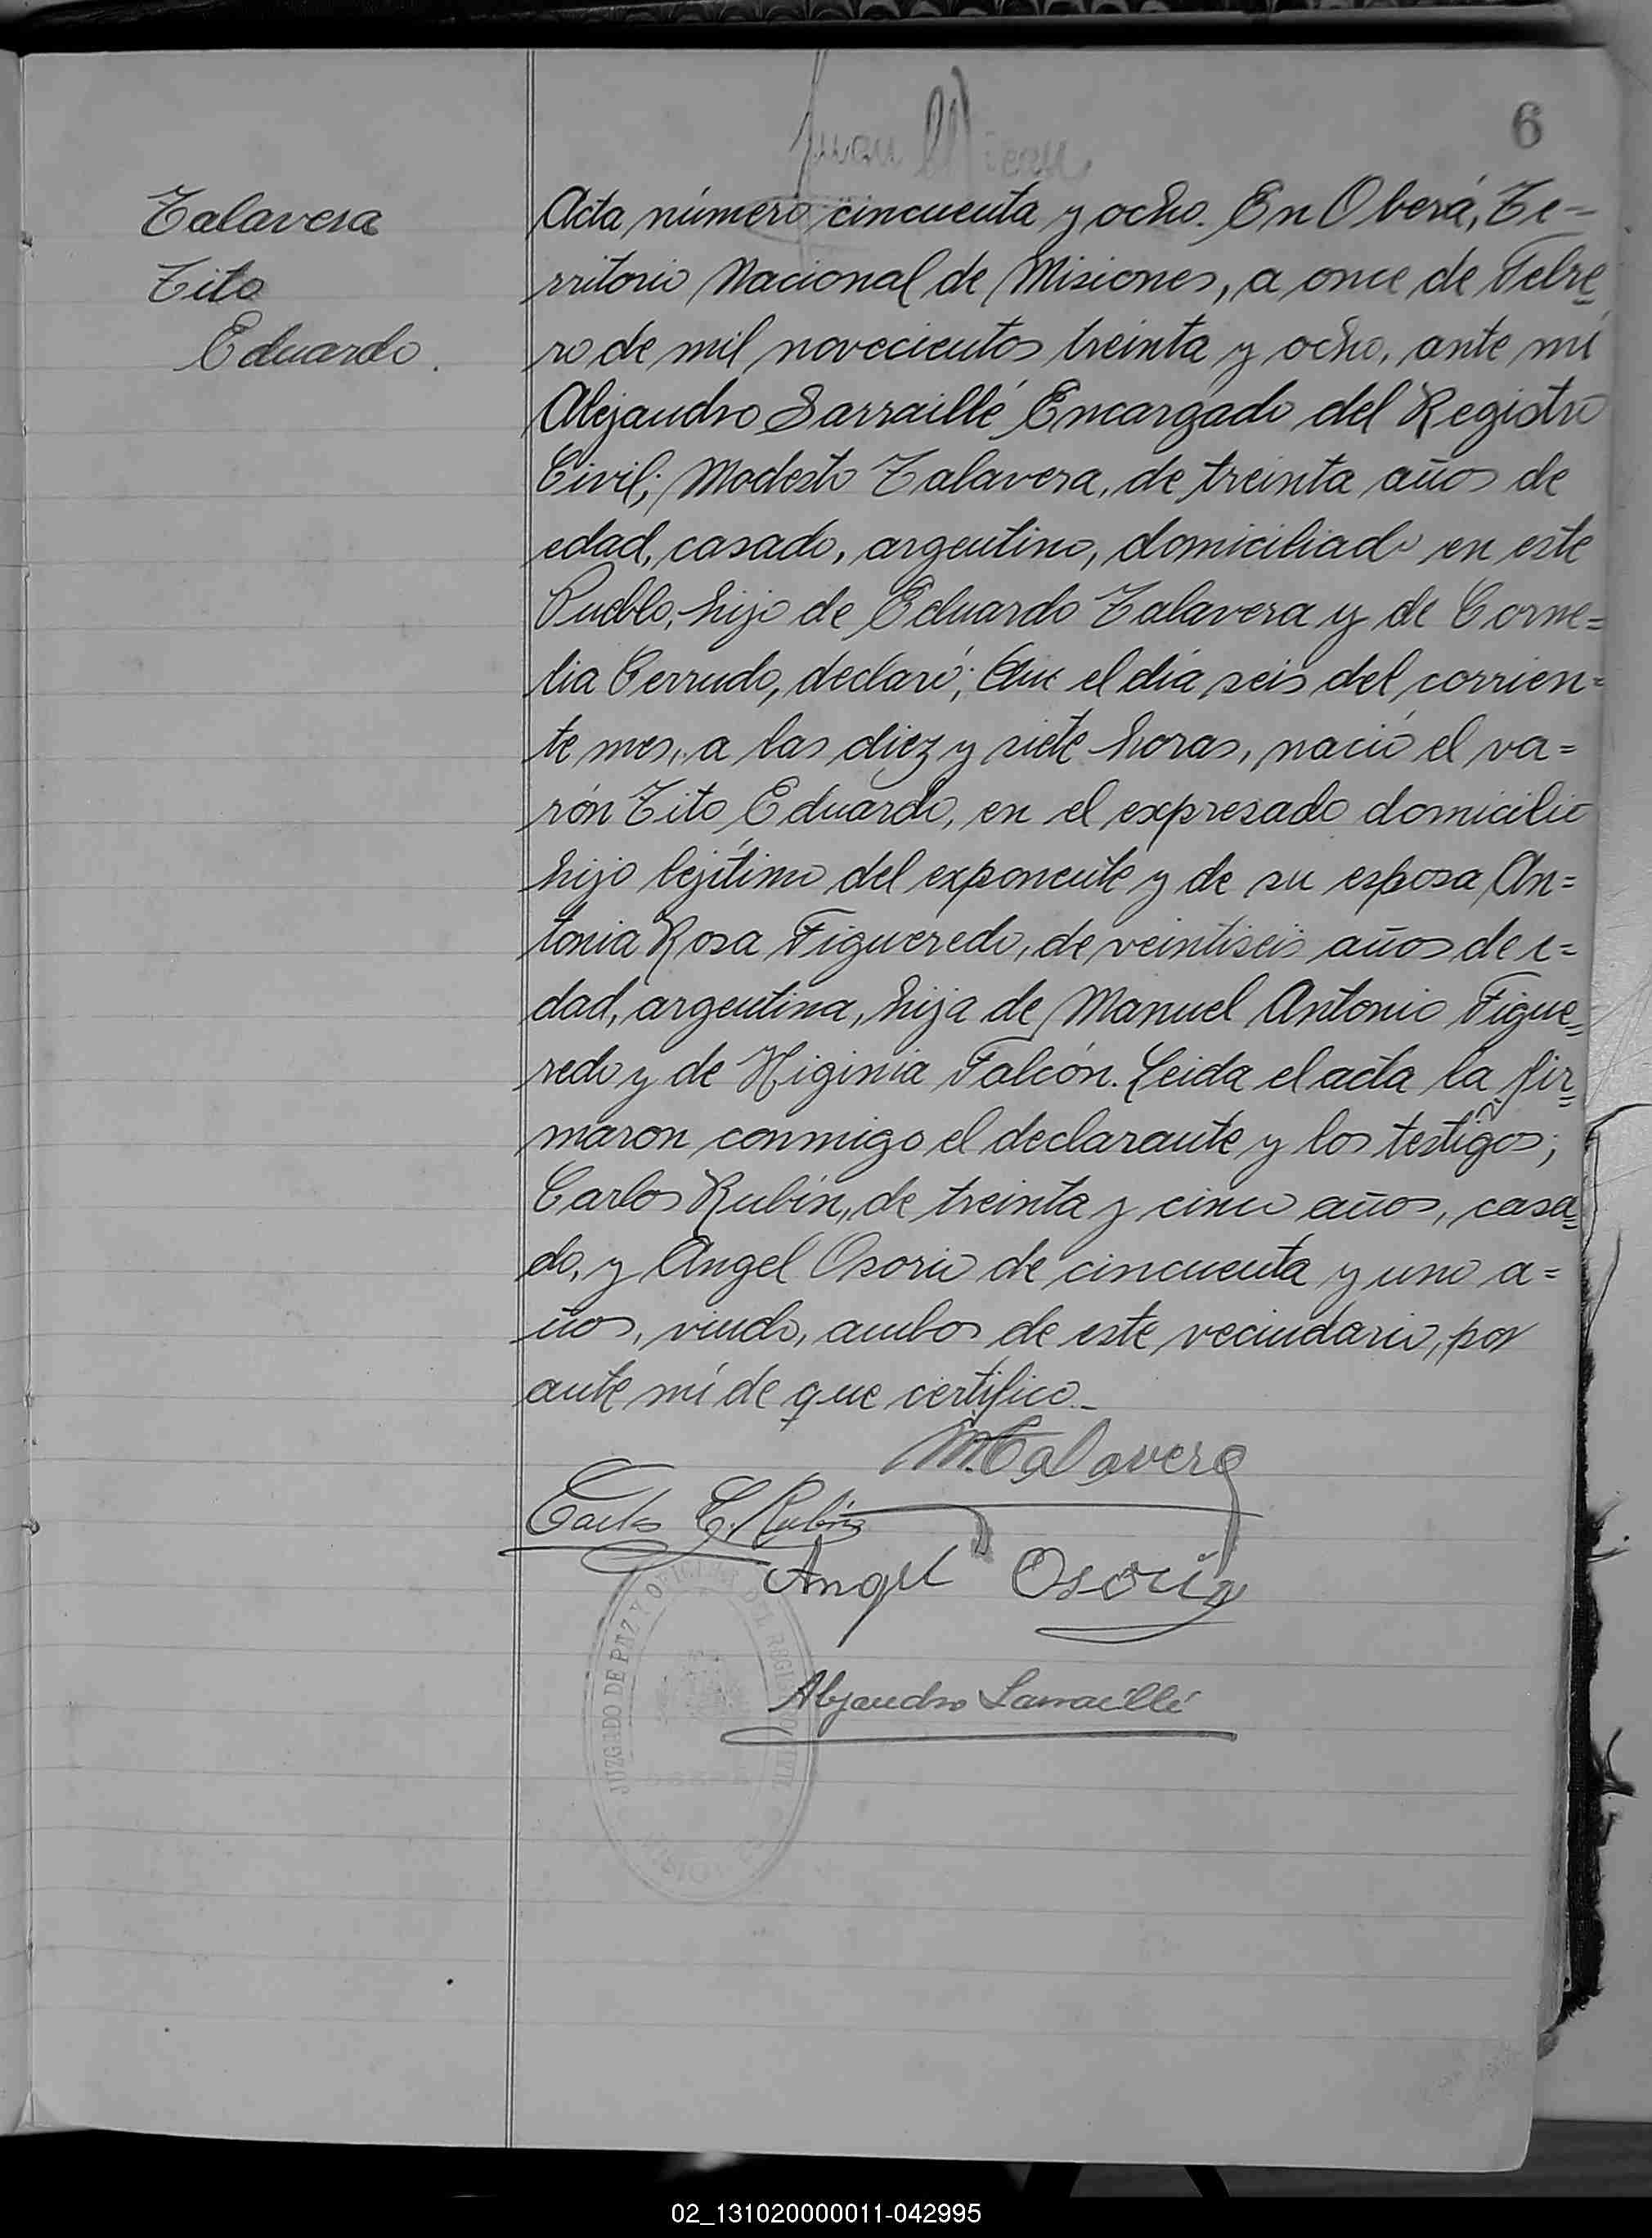 6
Talavera
Tito
Eduardo.
Acta número cincuenta y ocho. En Oberá, Te-
rritorio Nacional de Misiones, a once de Febre=
ro de mil novecientos treinta y ocho, ante mí
Alejandro Sarraillé Encargado del Registro
Civil; Modesto Talavera, de treinta años de
edad, casado, argentino, domiciliado en este
Pueblo, hijo de Eduardo Talavera y de Corne=
lia Cerrudo, declaró; Que el día seis del corrien=
te mes, a las diez y siete horas, nació el va=
rón Tito Eduardo, en el expresado domicilio
hijo lejítimo del exponente y de su esposa An=
tonia Rosa Figueredo, de veintiseis años de e=
dad, argentina, hija de Manuel Antonio Figue=
redo y de Higinia Falcón. Leida el acta la fir=
maron conmigo el declarante y los testigos;
Carlos Rubín, de treinta y cinco años, casa=
do, y Angel Osorio de cincuenta y uno a=
ños, viudo, ambos de este vecindario, por
ante mí de que certifico.-
M. Talavera
Carlos C. Rubín
Angel Osorio
JUZGADO DE PAZ Y OFICINA DEL REGISTRO CIVIL
Alejandro Sarraillé
02_131020000011-042995